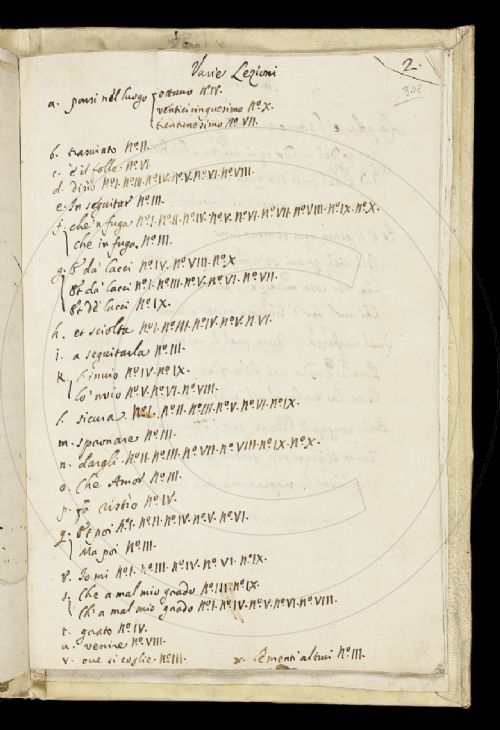 Varie Lezioni
2.
302
a. ponsi nel luogo ottavo No IV.
venticinquesimo No X.
trentunesimo No VII.
b. traviato No II.
c. è il folle No VI.
d. disio No I. No III. No IV. No V. No VI. No VIII.
e. In seguitar No III.
f. che 'n fuga No I. No II. No IV. No V. No VI. No VII. No VIII. No IX. No X.
che in fuga No III.
g. E' da' lacci No IV. No VIII. No X
Et da' lacci No I. No III. No V. No VI. No VII.
Et de' lacci No IX.
h. et sciolta No I. No III. No IV. No V. N. VI.
i. a seguitarla No III.
k. l'invio No IV. No IX.
lo 'nvio No V. No VI. No VIII.
l. sicura No I. No II. No III. No V. No VI. No IX.
m. spronare No III.
n. dargli No II. No III. No VII. No VIII. No IX. No X.
o. Chè Amor No III.
p. fa ristio No IV.
q. Et poi No I. No II. No IV. No V. No VI.
Ma poi No III.
r. Io mi No I. No III. No IV. No VI. No IX.
s. Che a mal mio grado No III. No IX.
Ch' a mal mio grado No I. No IV. No V. No VI. No VIII.
t. grato No IV.
u. venire No VIII.
v. ove si coglie No III.
x. Le menti altrui No III.